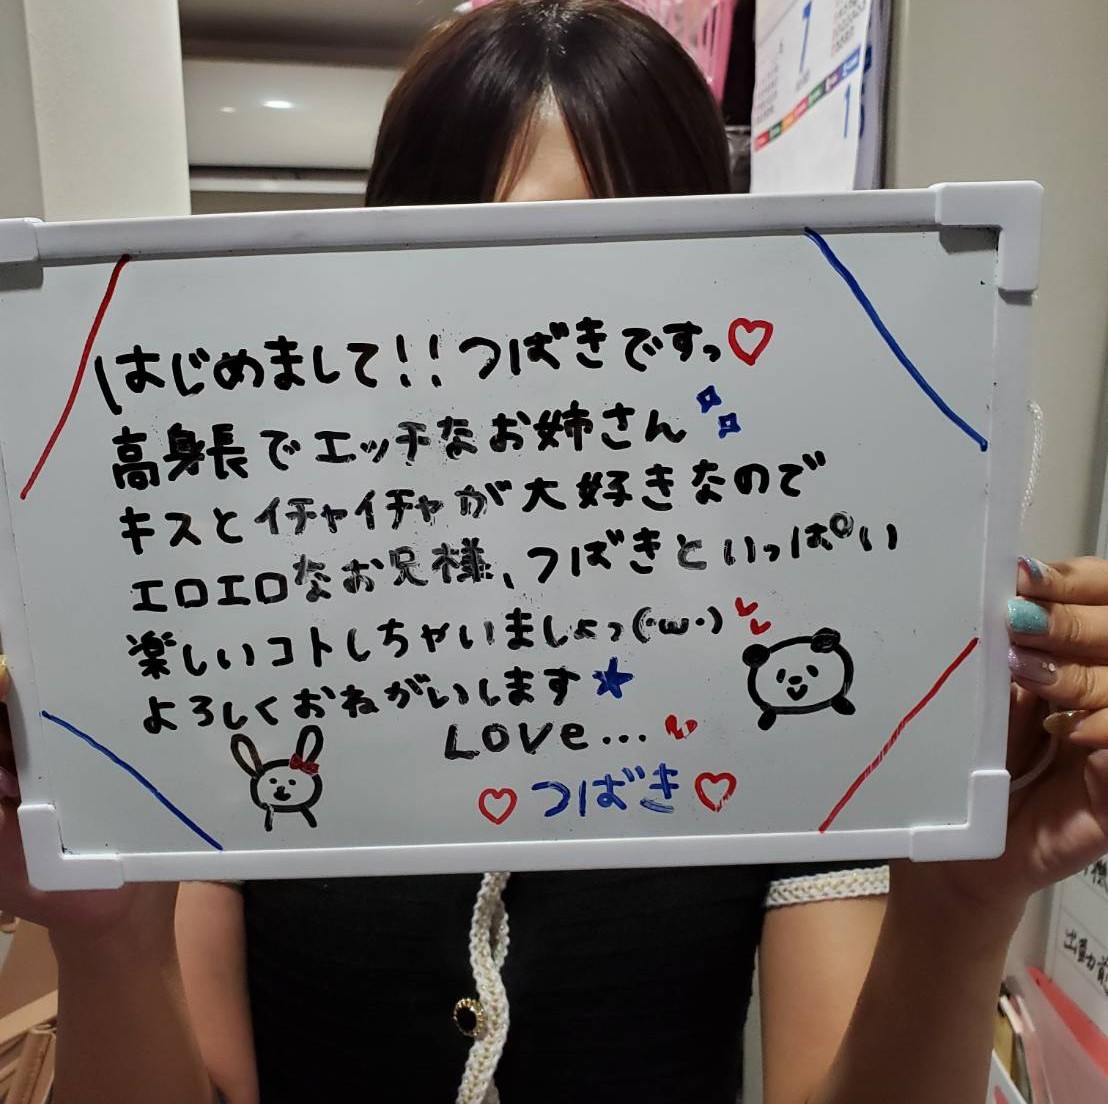 はじめまして!!つばきですっ♡
高身長でエッチなお姉さん
キスとイチャイチャが大好きなので
エロエロなお兄様、つばきといっぱい
楽しいコトしちゃいましょっ(・ω・)
よろしくおねがいします★
LOVE...
♡つばき♡
7
1